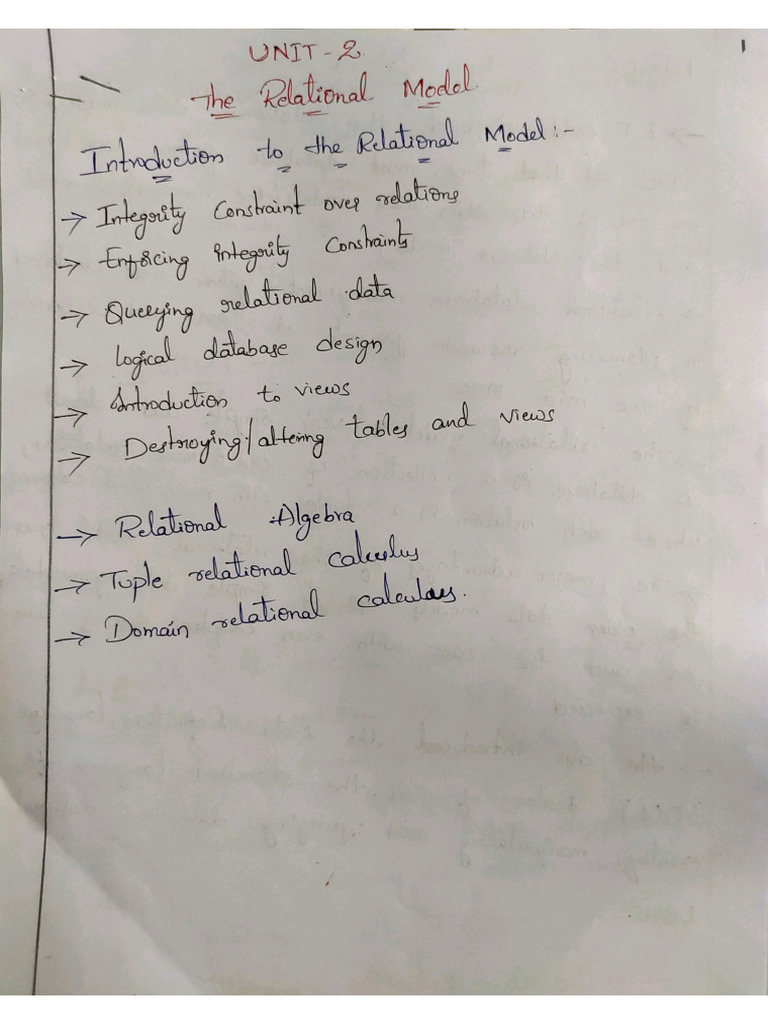 1
UNIT - 2
The Relational Model
Introduction to the Relational Model :-
→ Integrity Constraint over relations
→ Enforcing integrity Constraints
→ Querying relational data
→ Logical database design
→ Introduction to views
→ Destroying/altering tables and views
→ Relational Algebra
→ Tuple relational calculus
→ Domain relational calculus.